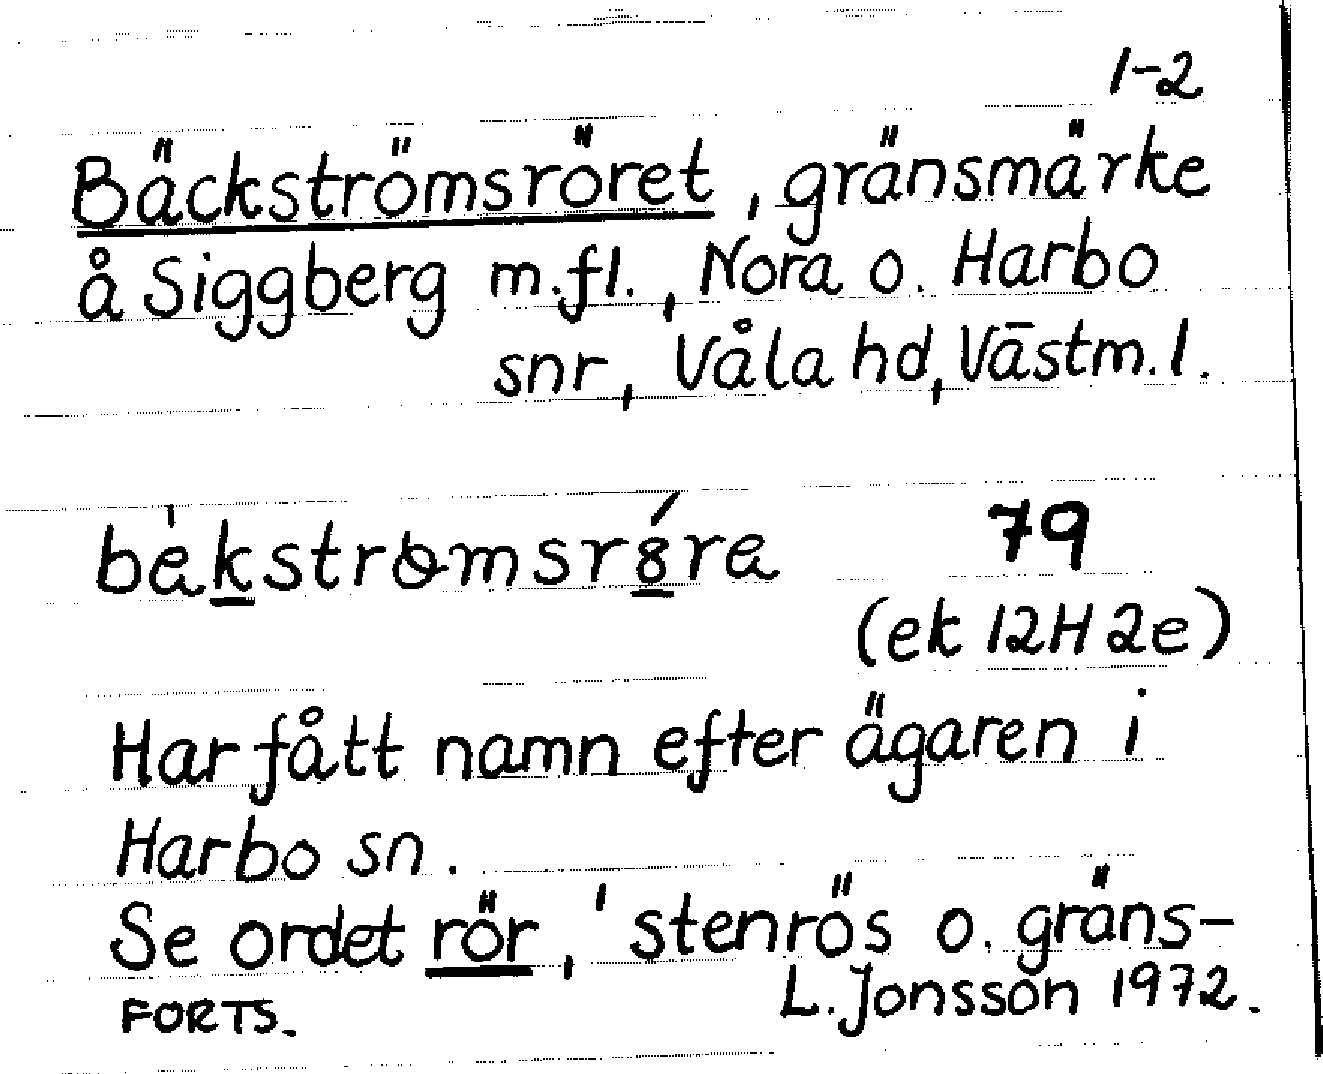 1-2
Bäckströmsröret, gränsmärke
å Siggberg m.fl., Nora o. Harbo
snr, Våla hd, Västm. l.
79
(ek 12H 2e)
Har fått namn efter ägaren i
Harbo sn.
Se ordet rör, 'stenrös o. gräns-
FORTS. L. Jonsson 1972.